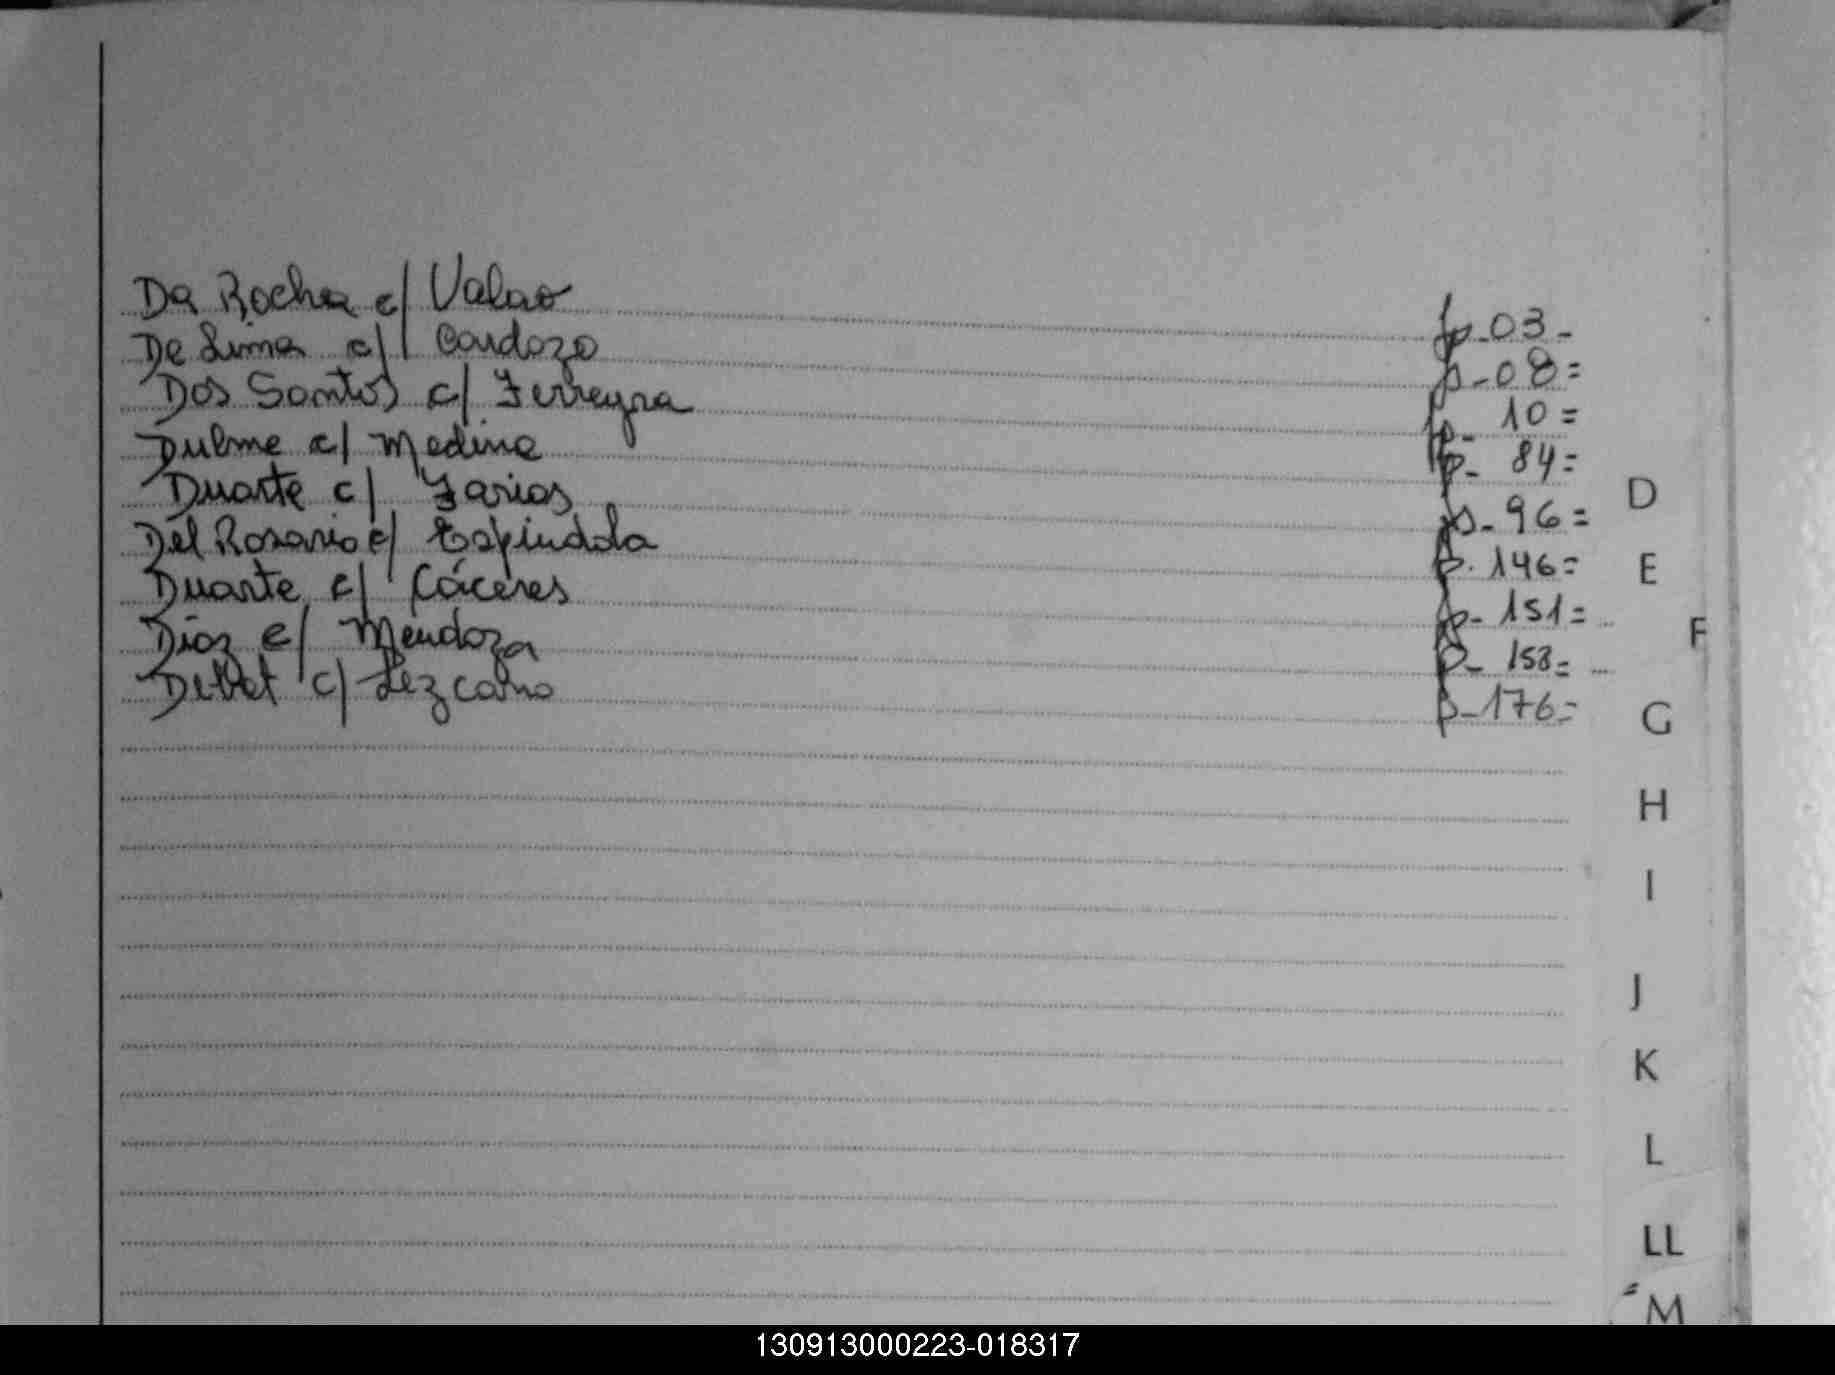 Da Rocha c/ Valao p-03-
De Lima c/ Cardozo p-08=
Dos Santos c/ Ferreyra p- 10=
Dulme c/ Medina p- 84=
Duarte c/ Farias p-96=
Del Rosario c/ Espindola p. 146=
Duarte c/ Cáceres p- 151=
Diaz c/ Mendoza p- 158=
c/ Lezcano p-176=
D
E
F
G
H
I
J
K
L
LL
M
130913000223-018317